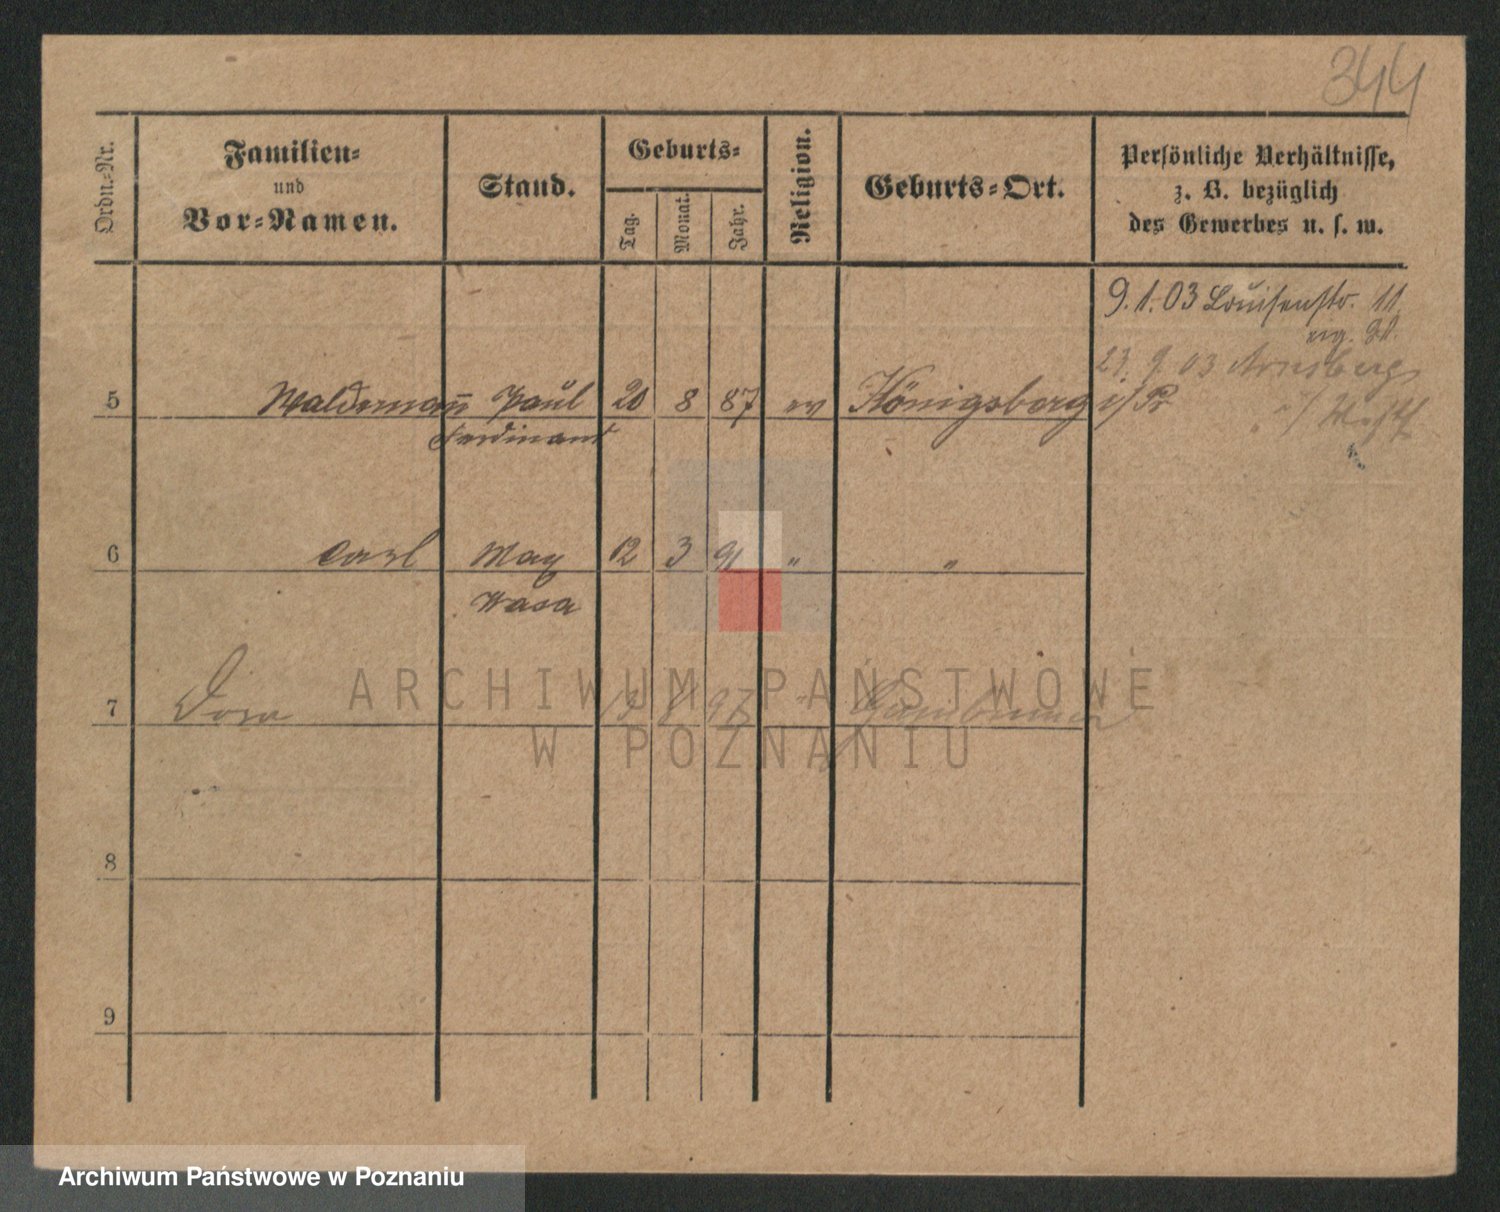 344
Ordn.-Nr.
Familien-
und
Vor-Namen.
Stand.
Geburts-
Tag.
Monat.
Jahr.
Religion.
Geburts-Ort.
Persönliche Verhältnisse,
z. B. bezüglich
des Gewerbes u. s. w.
9.1.03 Louisenstr. 11
23.9.03 Arnsberg
i/ Westf.
5 Waldemar Paul 20 8 87 ev Königsberg i/Pr
Ferdinand
6 Carl Max 12 3 91 " "
Wasa
7 Dora 97 Gumbinnen
ARCHIWUM PAŃSTWOWE
W POZNANIU
8
9
Archiwum Państwowe w Poznaniu